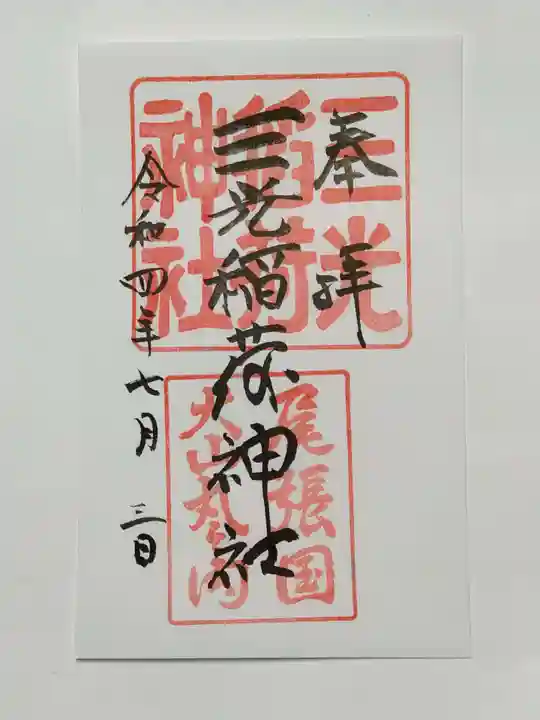 奉拝
三光稲荷神社
令和四年七月三日
三光
稲荷
神社
尾張国
犬山丸之内